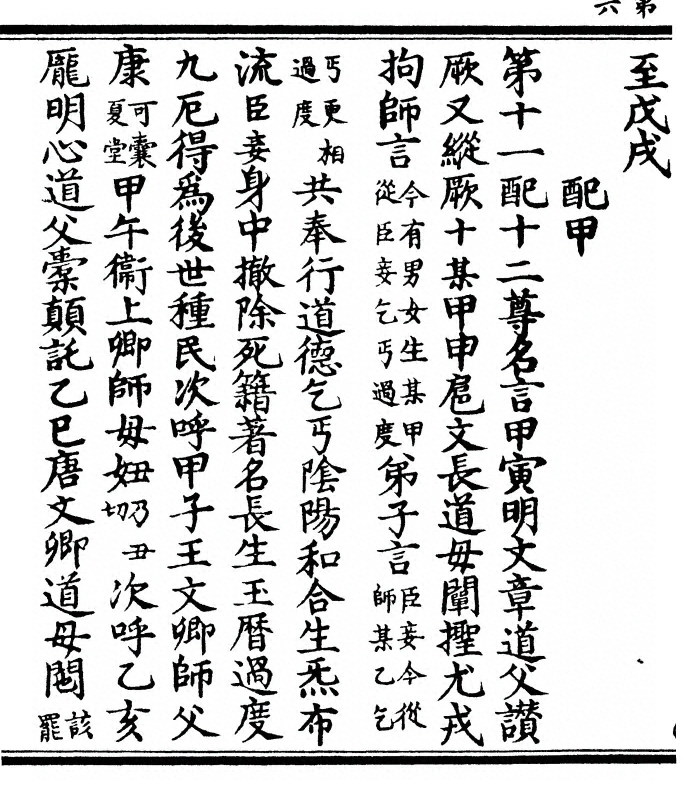 至戊戌
配甲
第十一配十二尊名言甲寅明文章道父讃
厥又縱厥十某甲申扈文長道母闡尤戎
拘師言今有男女生某甲從臣妾乞丐過度弟子言臣妾今從師某乙乞
丐更相過度共奉行道德乞丐陰陽和合生炁布
流臣妾身中撤除死籍著名長生玉曆過度
九厄得爲後世種民次呼甲子王文卿師父
康可囊夏堂甲午衞上卿師母妞乃丑切次呼乙亥
龐明心道父橐顛託乙巳唐文卿道母該罷